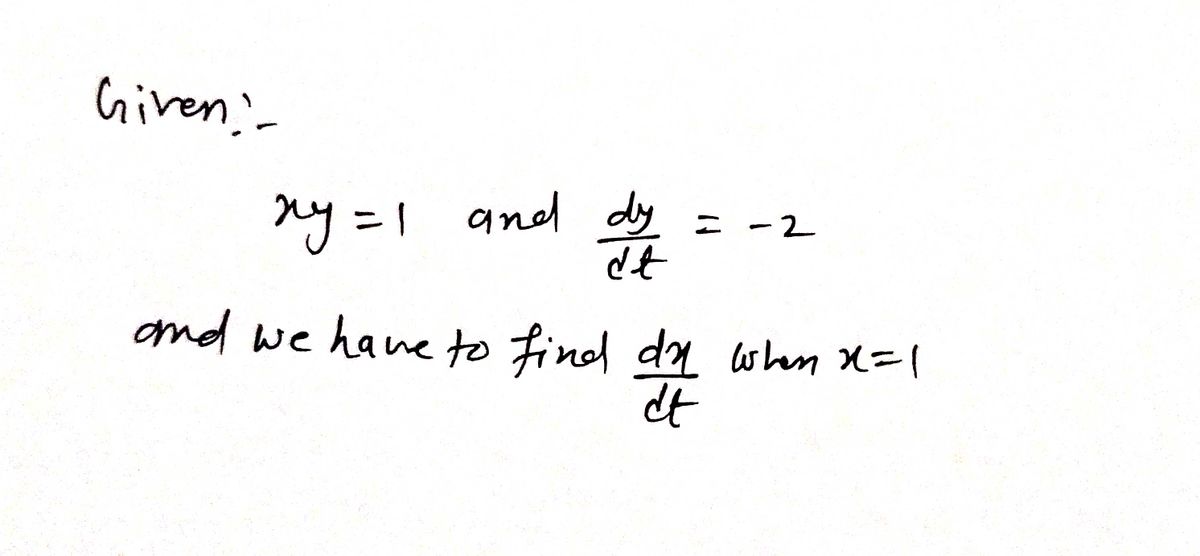 Given:-
xy = 1 and dy/dt = -2
and we have to find dx/dt when x=1